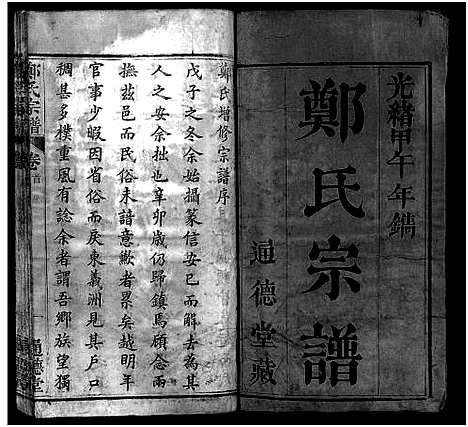 光緒甲午年鐫
鄭氏宗譜
通德堂藏
鄭氏增修宗譜序
戊子之冬余始攝篆信安巳而解去為其
人之安余拙也辛卯歲仍歸鎮焉顧念兩
撫茲邑而民俗未諳意歉者累矣越明年
官事少暇因省俗而戾東義洲見其戶口
稠甚多樸重風有諗余者謂吾鄉族望獨
鄭氏宗譜
卷首
通德堂